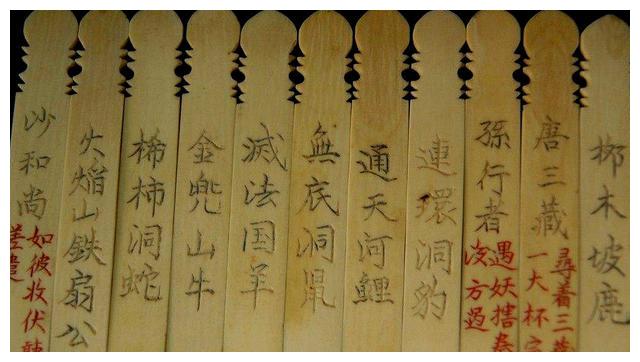 柳木坡鹿
唐三藏
尋着三藏
一大杯
孫行者
遇妖搳拳
方過
連環洞豹
通天河鯉
無底洞鼠
滅法国羊
金兜山牛
桸柿洞蛇
火焰山鉄扇公
沙和尚
如彼收伏
差遣